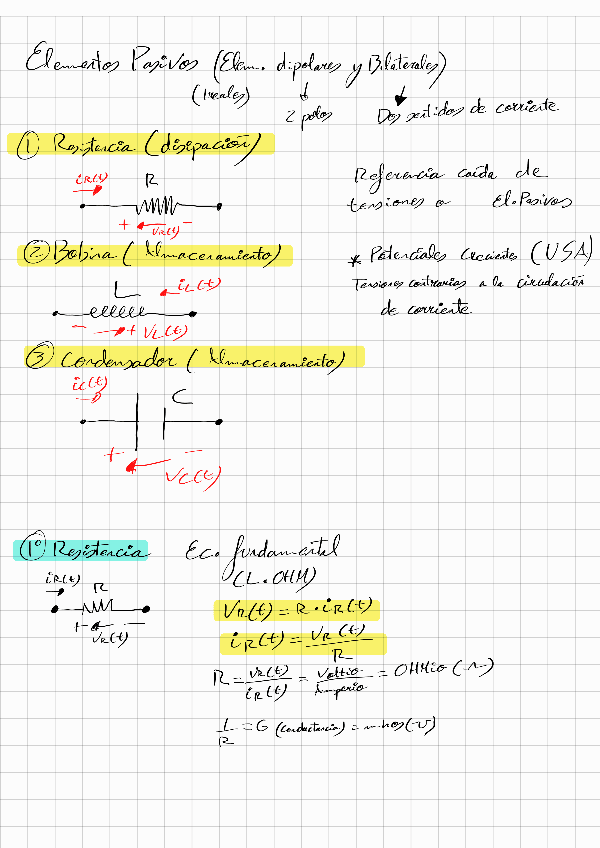 Elementos Pasivos (Elem. dipolares y Bilaterales)
(lreales) 2 polos Dos sentidos de corriente
① Resistencia (disipación)
iR(t) R
+ VR(t) -
Referencia caída de
tensiones o El. Pasivos
② Bobina (Almacenamiento)
L iL(t)
- + VL(t)
* Potenciales crecientes (USA)
Tensiones contrarias a la circulación
de corriente.
③ Condensador (Almacenamiento)
iC(t) C
+ -
VC(t)
1º Resistencia Ec. fundamental
(L. OHM)
iR(t) R
+ VR(t) -
VR(t) = R · iR(t)
iR(t) = VR(t)/R
R = VR(t)/iR(t) = Voltio/Amperio = OHMio (Ω)
1/R = G (conductancia) = mhos (℧)